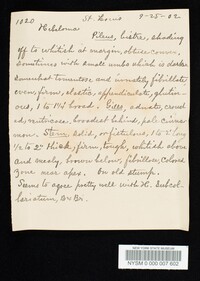 1020 St. Louis 9-25-02
Hebeloma
Pileus, bistre, shading
off to whitish at margin, obtuse convex
sometimes with small umbo which is darker
somewhat tomentose and innately fibrillose
even, firm, elastic, appendiculate, glutin-
ous, 1 to 1¼ broad. Gills, adnate, crowd
ed, ventricose, broadest behind, pale cinna
mon. Stem solid, or fistulous, 1 to 2" long
½ to 2" thick, firm, tough, whitish above
and mealy, brown below, fibrillose, colored
zone near apex. On old stump.
Seems to agree pretty well with H. Subcol-
lariatum, B & Br.
NEW YORK STATE MUSEUM
NYSM 0 000 007 602